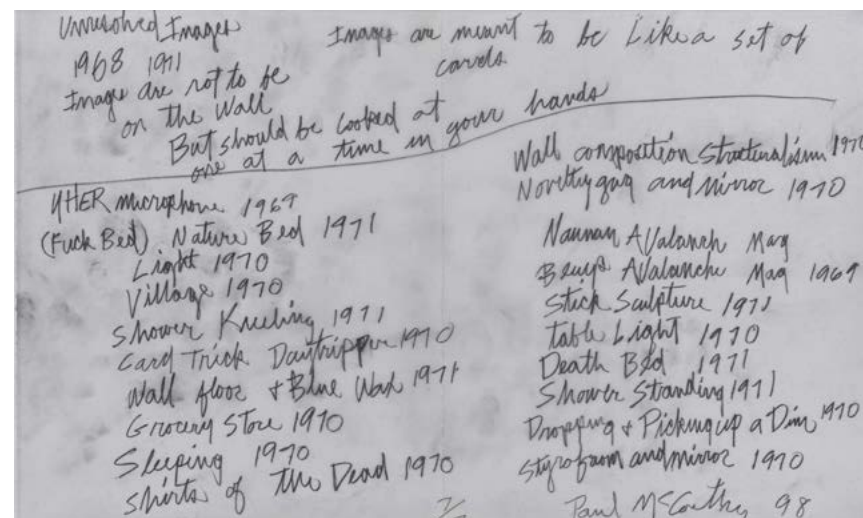 Unresolved Images
1968 1971
Images are not to be
on the Wall
But should be looked at
one at a time in your hands
Images are meant to be Like a set of
cards.
UHER microphone 1969
(Fuck Bed) Nature Bed 1971
Light 1970
Village 1970
Shower Kneeling 1971
Card Trick Daytripper 1970
Wall floor + Blue Wax 1971
Grocery Store 1970
Sleeping 1970
Shirts of the Dead 1970
Wall composition Structuralism 1970
Novelty gag and mirror 1970
Nauman AValanch Mag
Beuys AValanche Mag 1969
Stick Sculpture 1971
table Light 1970
Death Bed 1971
Shower Standing 1971
Dropping + Picking up a Dim 1970
Styrofoam and mirror 1970
Paul McCarthy 98